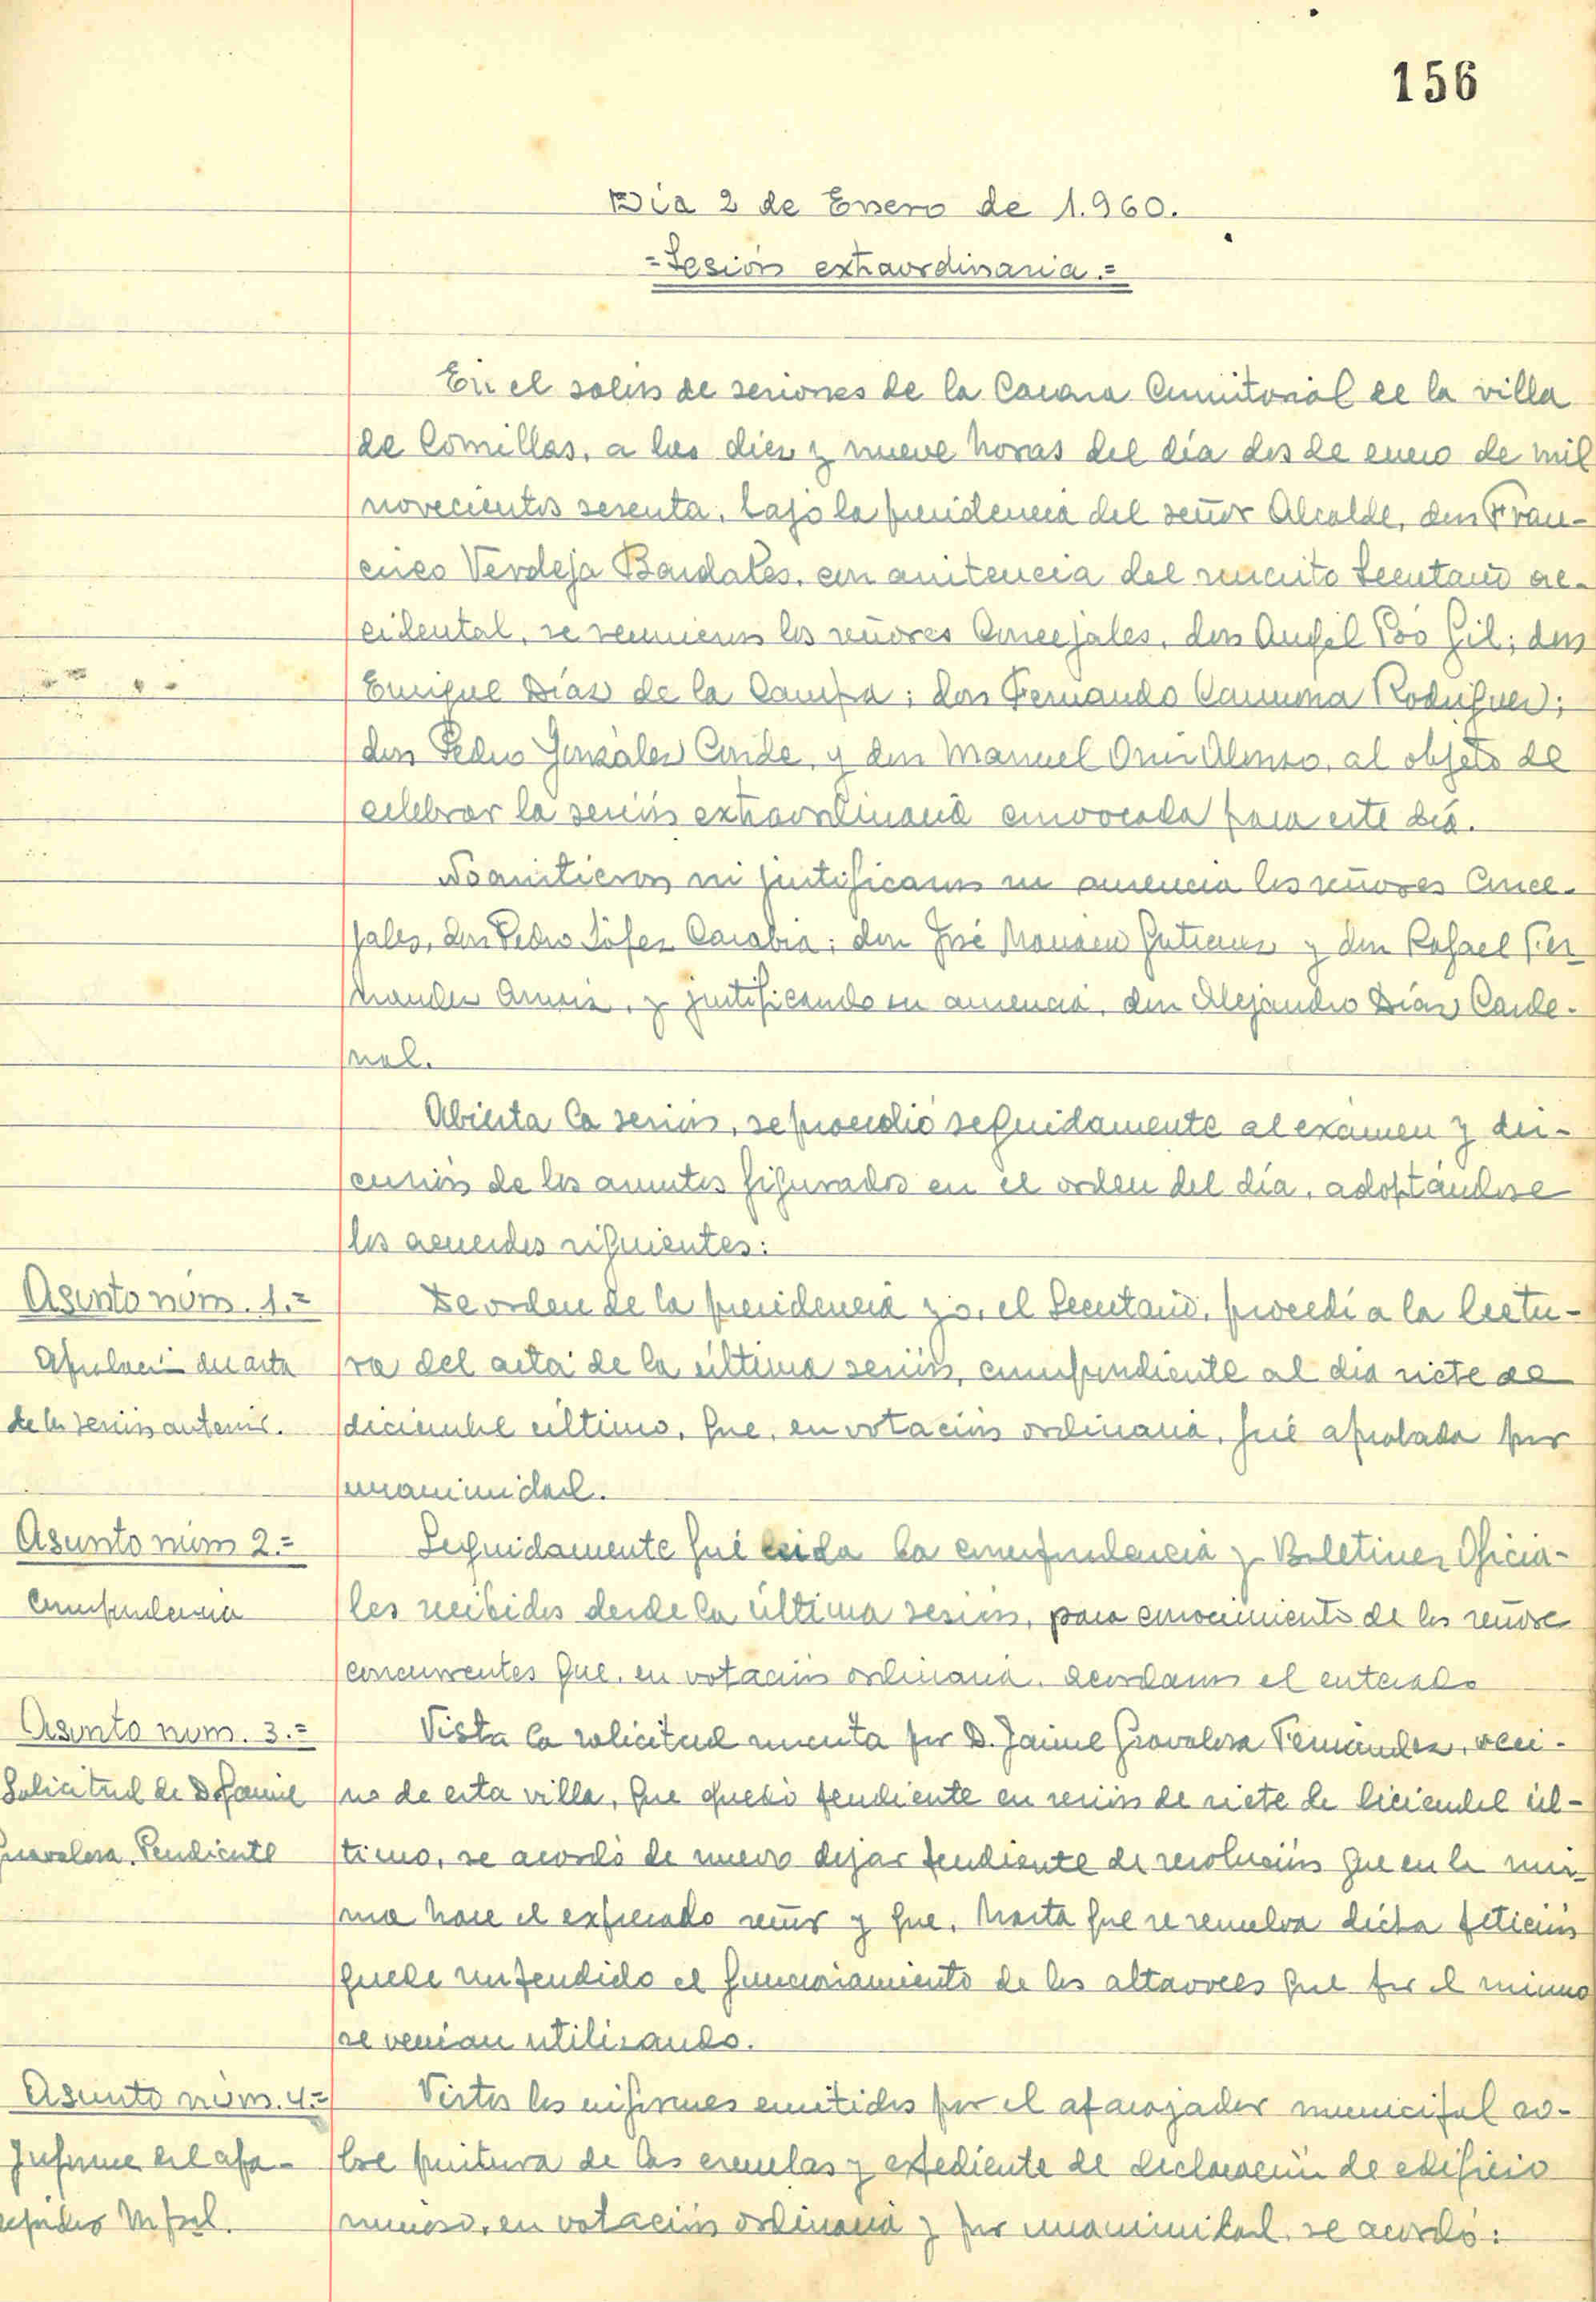 156
Día 2 de Enero de 1.960.
=Sesión extraordinaria.=
En el salón de sesiones de la Casa Consistorial de la villa
de Comillas, a las diez y nueve horas del día dos de enero de mil
novecientos sesenta, bajo la presidencia del señor Alcalde, don Fran-
cisco Verdeja Bardales, con asistencia del suscrito Secretario ac-
cidental, se reunieron los señores Concejales, don Angel Poo Gil; don
Enrique Díaz de la Campa; don Fernando Rodriguez;
don Pedro González Conde, y don Manuel Alonso, al objeto de
celebrar la sesión extraordinaria convocada para este día.
No asistieron ni justificaron su ausencia los señores Conce-
jales, don Pedro Carabia; don José Gutierrez y don Rafael Fer
nandez, y justificando su ausencia, don Alejandro Díaz Carde-
nal.
Abierta la sesión, se procedió seguidamente al exámen y dis-
cusión de los asuntos figurados en el orden del día, adoptándose
los acuerdos siguientes:
Asunto núm. 1.=
Aprobación del acta
de la sesión anterior.
De orden de la presidencia yo, el Secretario, procedí a la lectu-
ra del acta de la última sesión, correspondiente al dia siete de
diciembre último, que, en votación ordinaria, fué aprobada por
unanimidad.
Asunto núm 2.=
Correspondencia
Seguidamente fué leida la correspondencia y Boletines Oficia-
les recibidos desde la última sesión, para conocimiento de los señores
concurrentes que, en votación ordinaria, acordaron el enterado
Asunto núm. 3.=
Solicitud de D Jaime
Pendiente
Vista la solicitud suscrita por D. Jaime Fernández, veci-
no de esta villa, que quedó pendiente en sesión de siete de diciembre úl-
timo, se acordó de nuevo dejar pendiente de resolución que en la mis-
ma hace el expresado señor y que, hasta que se resuelva dicha petición
quede suspendido el funcionamiento de los altavoces que por el mismo
se venian utilizando.
Asunto núm. 4.=
Informe del apa-
rejador Mpal.
Vistos los informes emitidos por el aparejador municipal so-
bre pintura de las escuelas y expediente de declaración de edificio
ruinoso, en votación ordinaria y por unanimidad, se acordó: